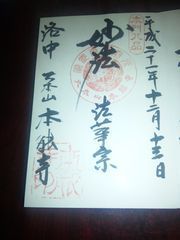 平成二十一年十二月十三日
妙法
法華宗
洛中 大本山 本能寺